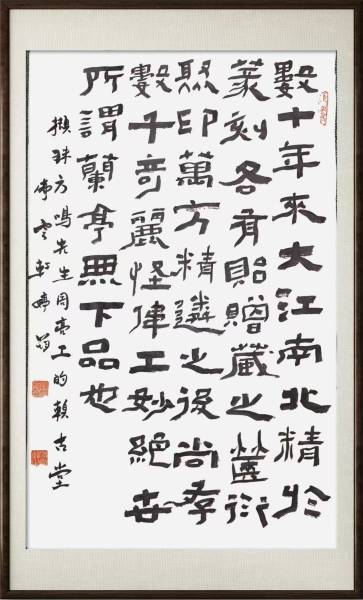 數十年來大江南北精於
篆刻各有貽贈藏之篋衍
聚印萬方精遴之後尚存
數千奇麗怪偉工妙絕世
所謂蘭亭無下品也
方鳴先生周亮工的賴古堂
雲軒婷